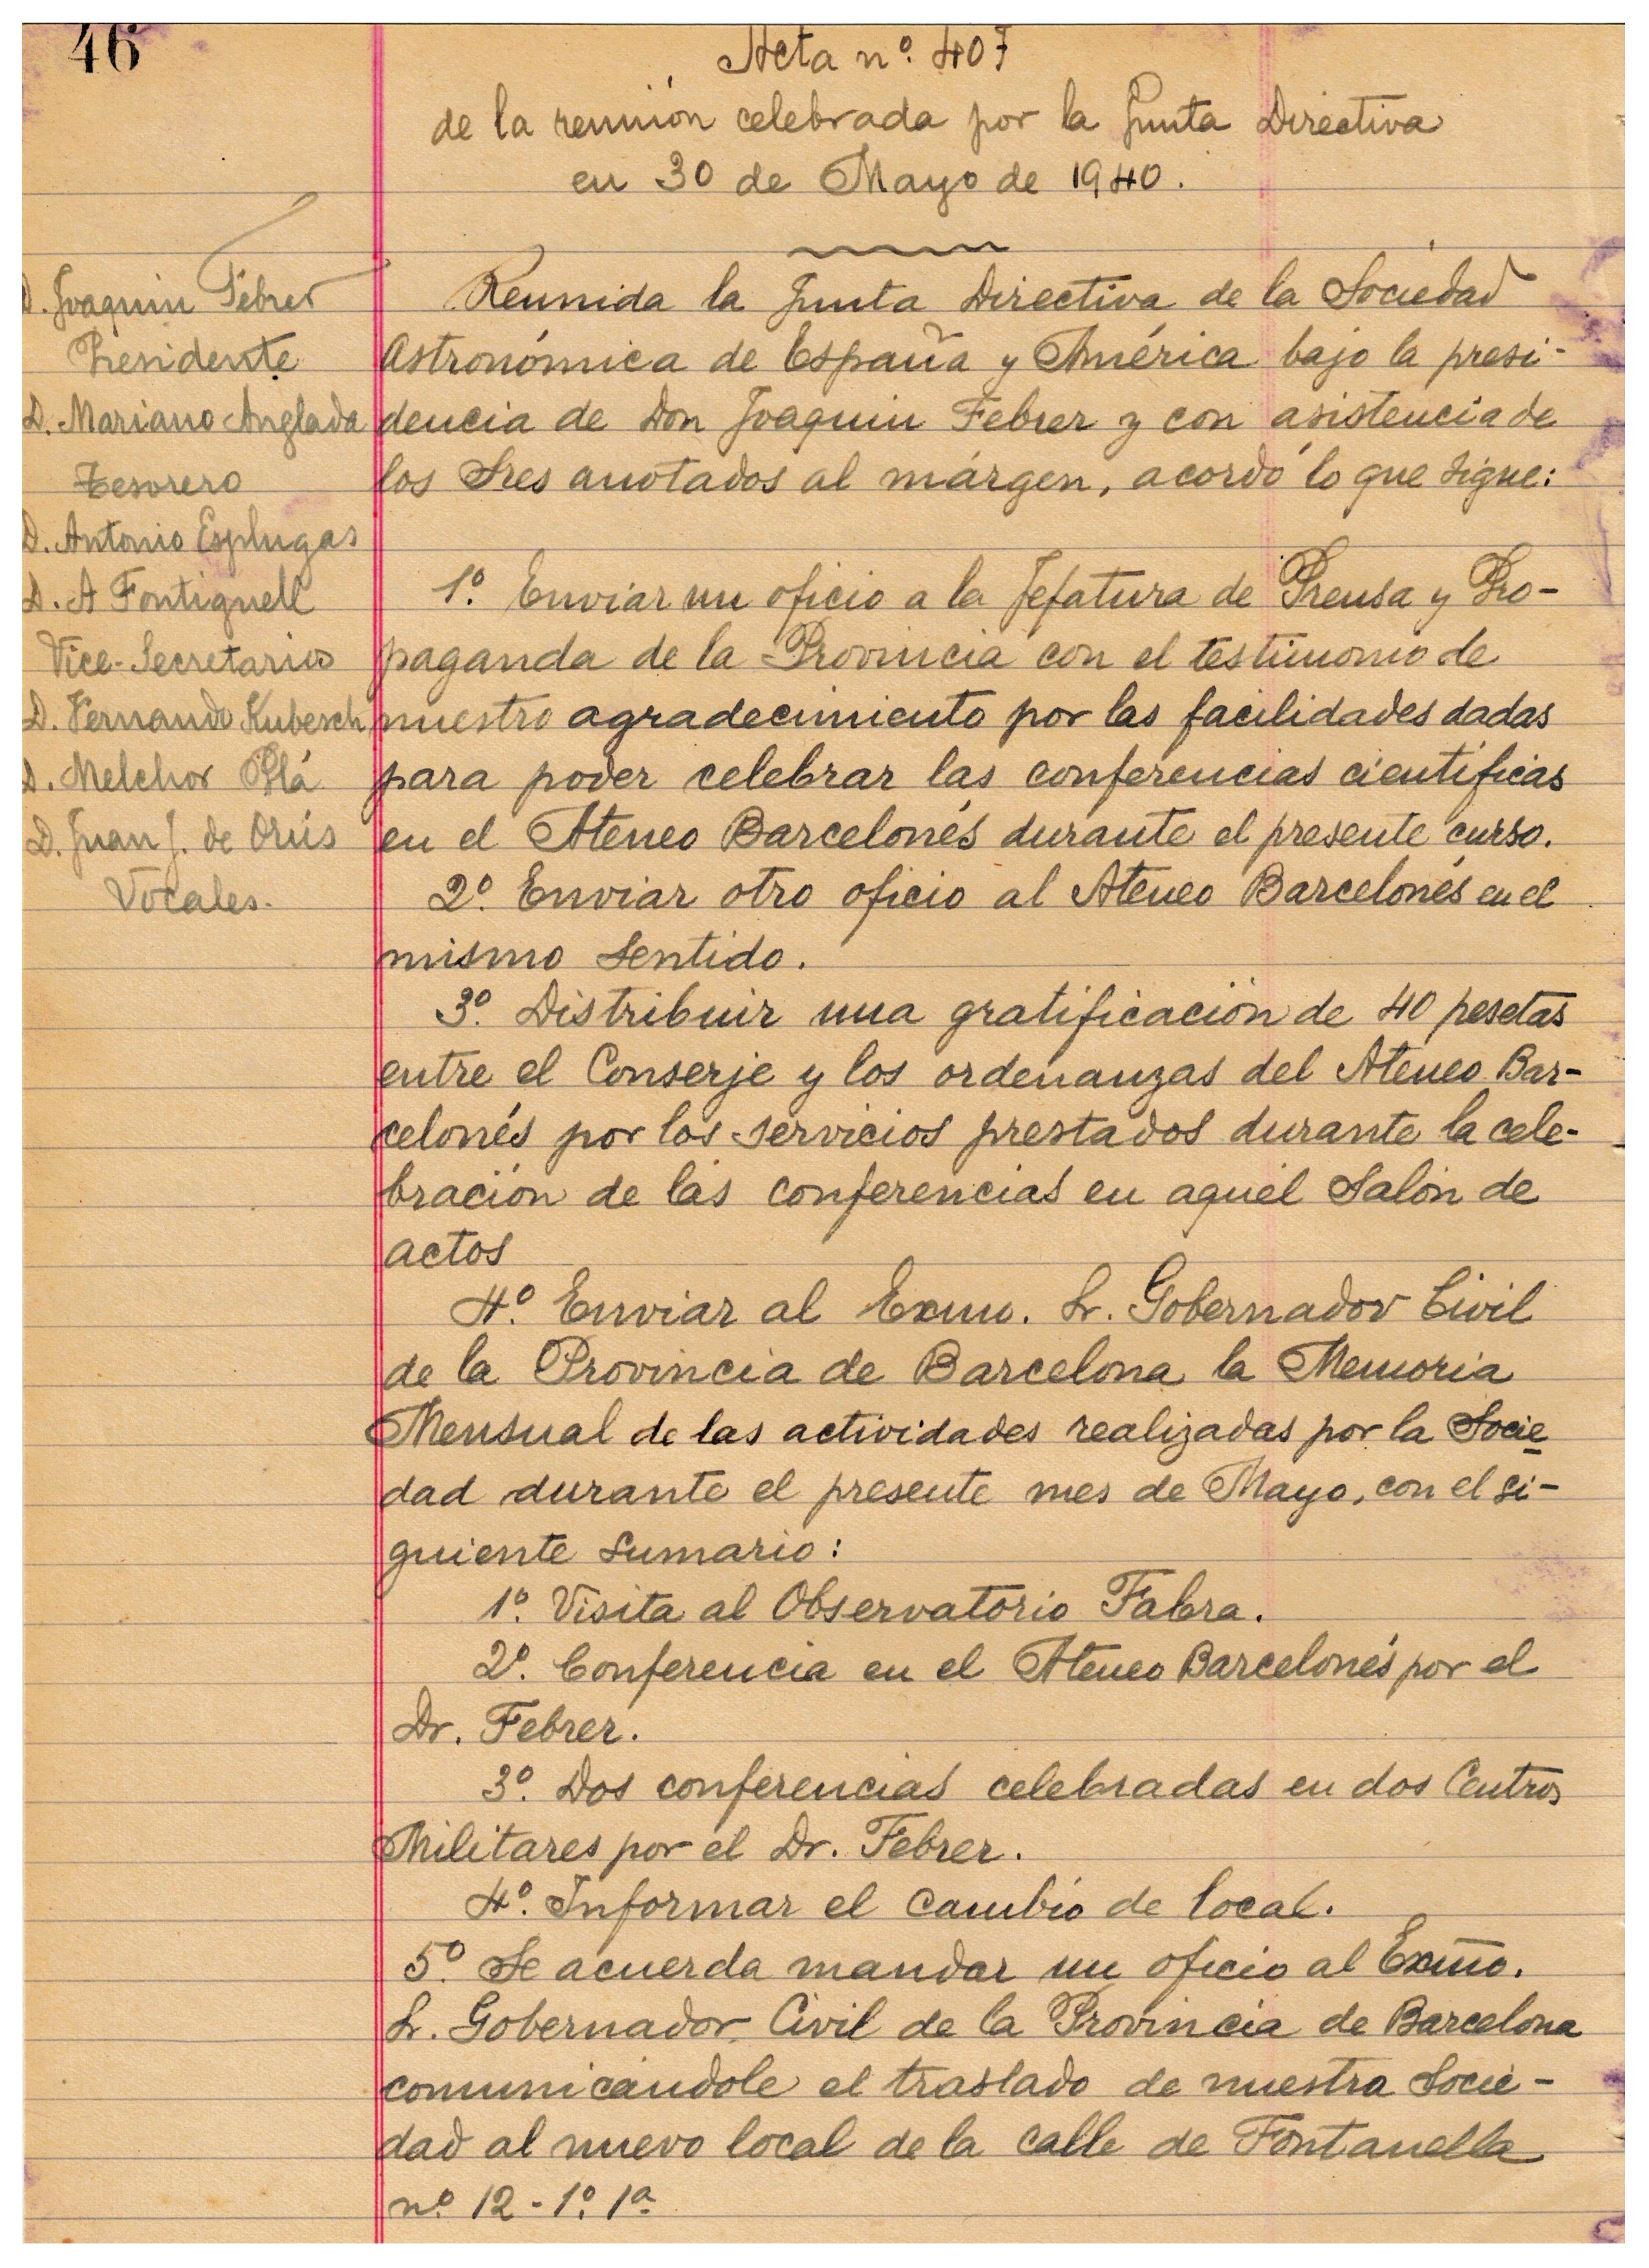 46
Acta nº. 407
de la reunión celebrada por la Junta Directiva
en 30 de Mayo de 1940.
D. Joaquin Febrer
Presidente
D. Mariano Anglada
Tesorero
D. Antonio Esplugas
D. A Fontignell
Vice-Secretarios
D. Fernando Kubesch
D. Melchor Plá
D. Juan J. de Orús
Vocales.
Reunida la Junta Directiva de la Sociedad
Astronómica de España y América bajo la presi-
dencia de Don Joaquin Febrer y con asistencia de
los Sres anotados al márgen, acordó lo que sigue:
1º. Enviar un oficio a la Jefatura de Prensa y Pro-
paganda de la Provincia con el testimonio de
nuestro agradecimiento por las facilidades dadas
para poder celebrar las conferencias científicas
en el Ateneo Barcelonés durante el presente curso.
2º. Enviar otro oficio al Ateneo Barcelonés en el
mismo sentido.
3º. Distribuir una gratificación de 40 pesetas
entre el Conserje y los ordenanzas del Ateneo Bar-
celonés por los servicios prestados durante la cele-
bración de las conferencias en aquel Salón de
actos
4º. Enviar al Exmo. Sr. Gobernador Civil
de la Provincia de Barcelona la Memoria
Mensual de las actividades realizadas por la Socie-
dad durante el presente mes de Mayo, con el si-
guiente sumario:
1º. Visita al Observatorio Fabra.
2º. Conferencia en el Ateneo Barcelonés por el
Dr. Febrer.
3º. Dos conferencias celebradas en dos Centros
Militares por el Dr. Febrer.
4º. Informar el cambio de local.
5º. Se acuerda mandar un oficio al Exmo.
Sr. Gobernador Civil de la Provincia de Barcelona
comunicándole el traslado de nuestra Socie-
dad al nuevo local de la calle de Fontanella
nº. 12 - 1º. 1ª